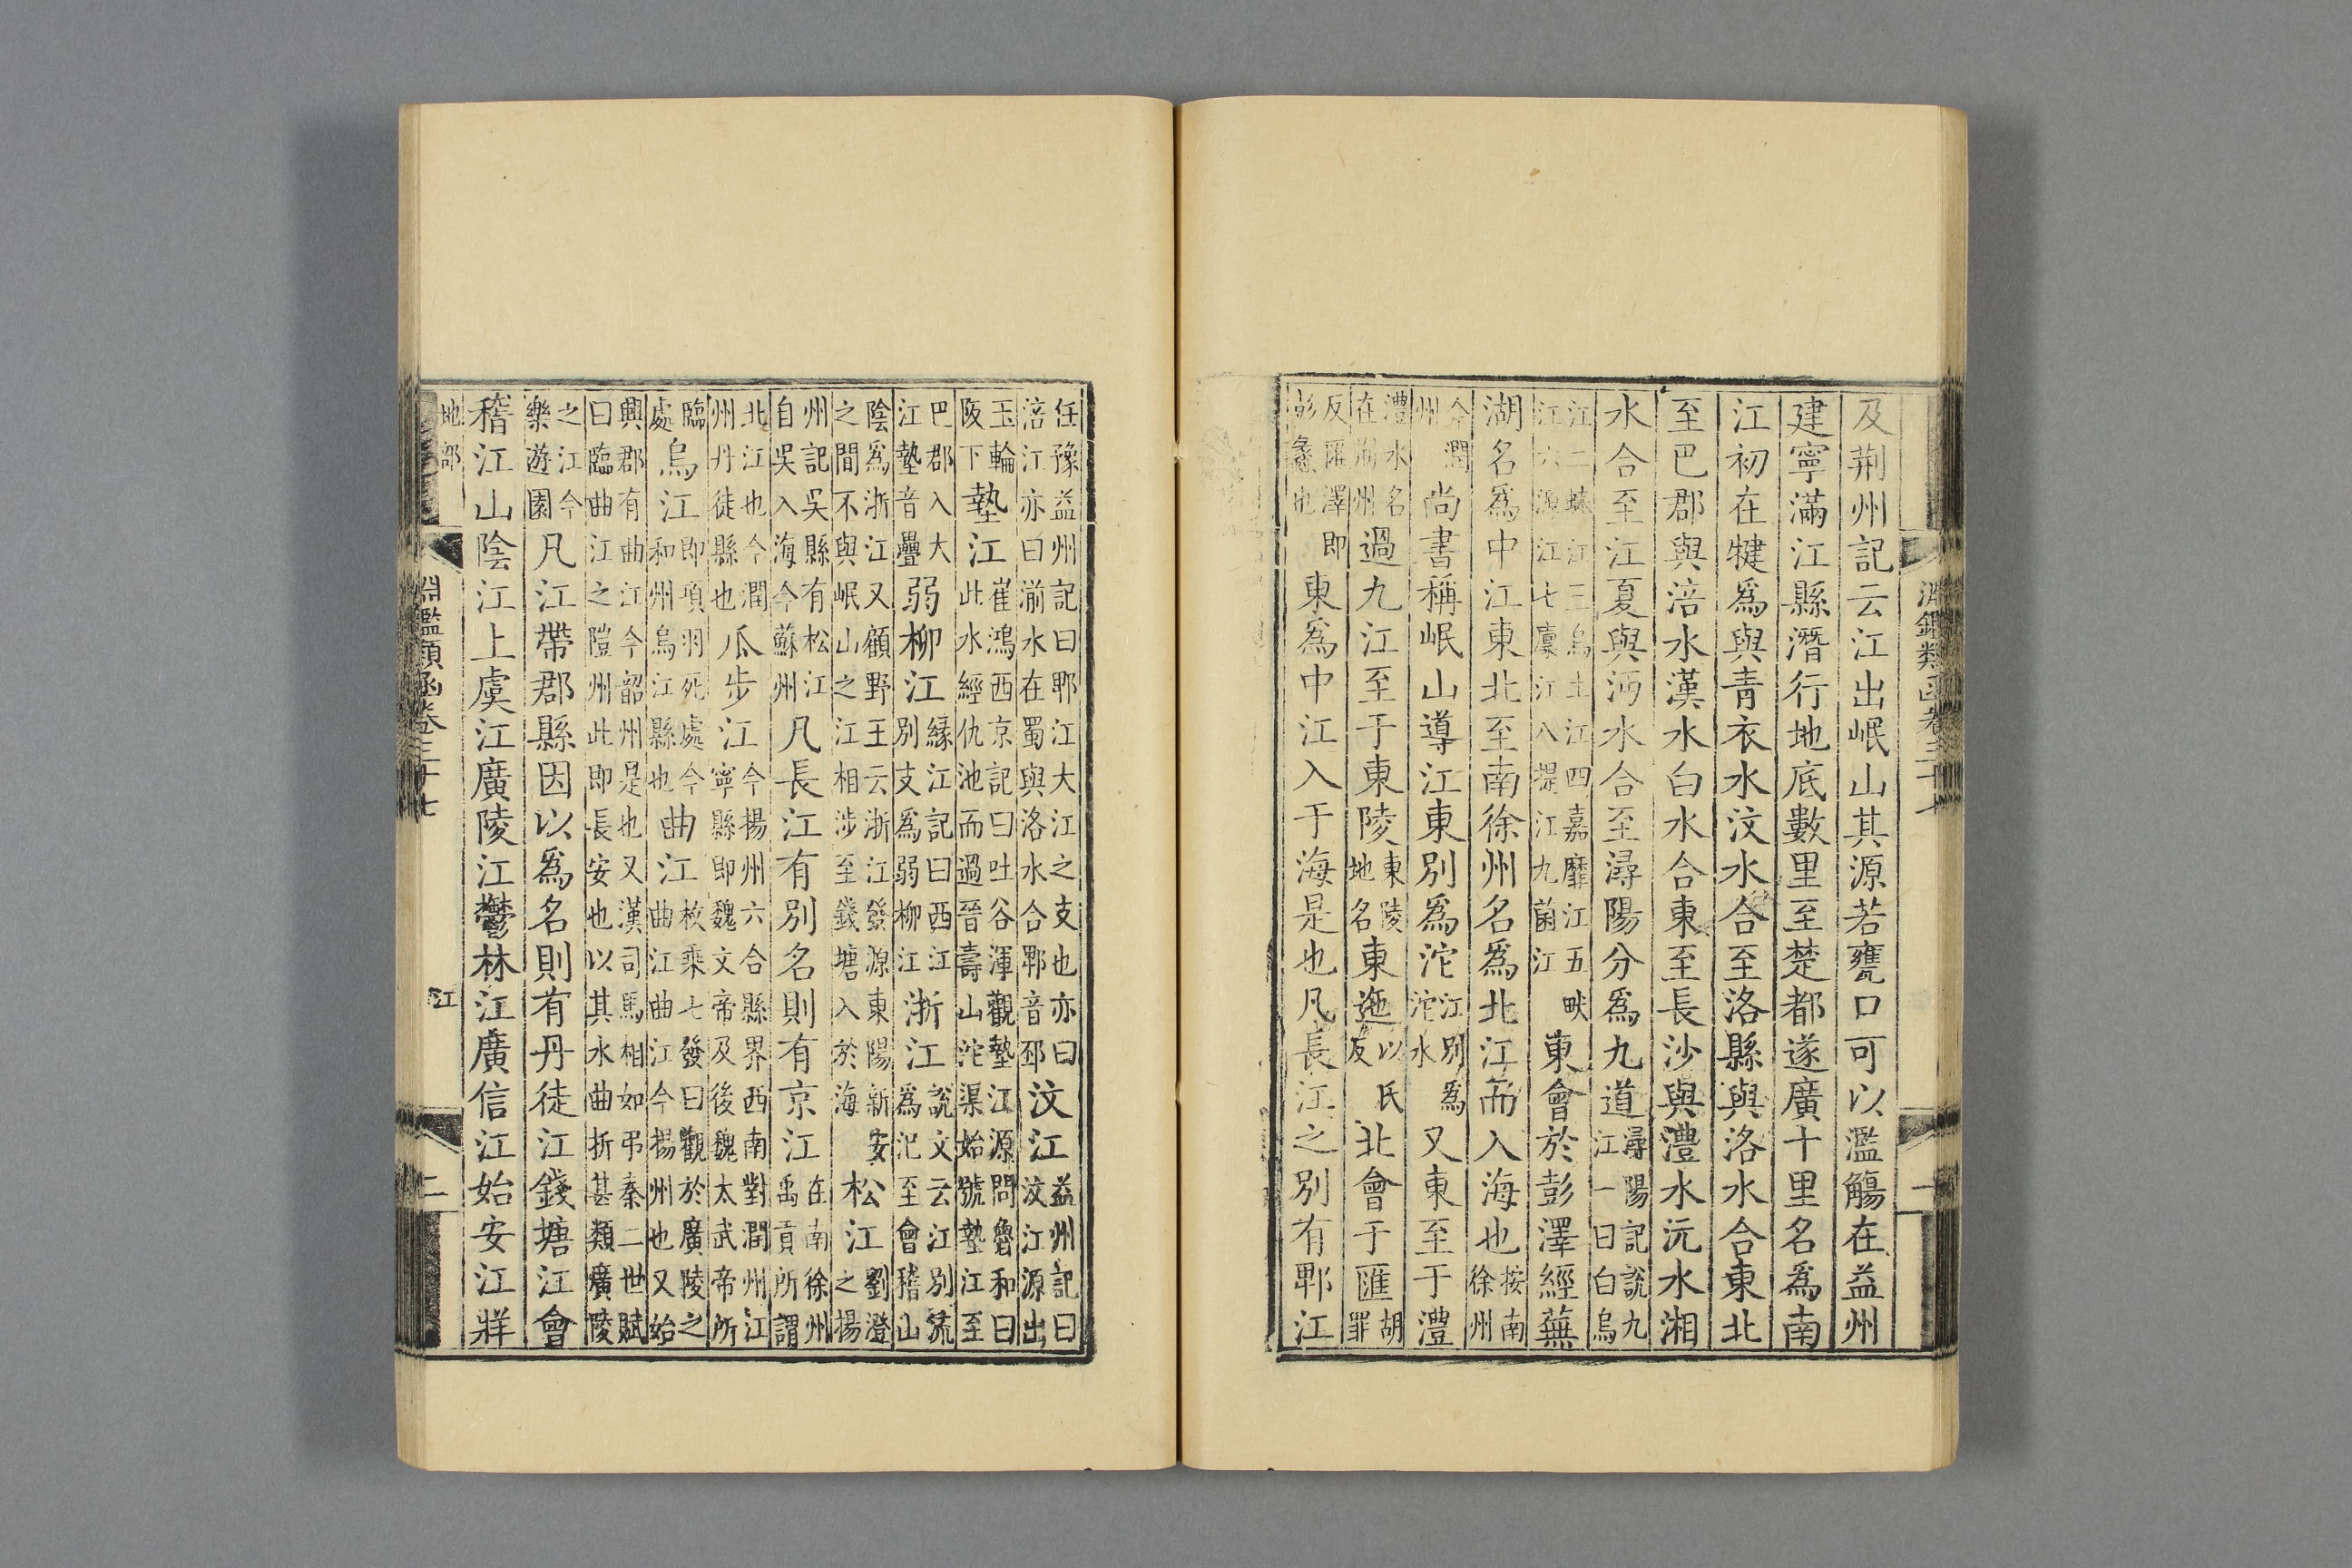 淵鑑類函卷三十七
一
及荆州記云江出岷山其源若甕口可以濫觴在益州
建寧滿江縣潛行地底數里至楚都遂廣十里名爲南
江初在犍爲與青衣水汶水合至洛縣與洛水合東北
至巴郡與涪水漢水白水合東至長沙與澧水沅水湘
水合至江夏與沔水合至潯陽分爲九道潯陽記說九江一曰白烏
江二蜯江三烏土江四嘉靡江五畎江六源江七廩江八提江九菌江東會於彭澤經蕪
湖名爲中江東北至南徐州名爲北江而入海也按南徐州
今潤州尚書稱岷山導江東別爲沱江別爲沱水又東至于澧
澧水名在荆州過九江至于東陵東陵地名東迤以氏反北會于匯胡罪
反匯澤即彭蠡也東爲中江入于海是也凡長江之別有郫江
任豫益州記曰郫江大江之支也亦曰涪江亦曰湔水在蜀與洛水合郫音邳汶江益州記曰汶江源出
玉輪阪下墊江崔鴻西京記曰吐谷渾觀墊江源問魯和曰此水經仇池而過晉壽山沱渠始號墊江至
巴郡入大江墊音疊弱柳江緣江記曰西江別支爲弱柳江浙江說文云江別流爲汜至會稽山
陰爲浙江又顧野王云浙江發源東陽新安之間不與岷山之江相涉至錢塘入於海松江劉澄之揚
州記吳縣有松江自吳入海今蘇州凡長江有別名則有京江在南徐州禹貢所謂
北江也今潤州丹徒縣也瓜步江今揚州六合縣界西南對潤州江寧縣即魏文帝及後魏太武帝所
臨處烏江即項羽死處今和州烏江縣也曲江枚乘七發曰觀於廣陵之曲江曲江今揚州也又始
興郡有曲江今韶州是也又漢司馬相如弔秦二世賦曰臨曲江之隑州此即長安也以其水曲折甚類廣陵
之江今樂遊園凡江帶郡縣因以爲名則有丹徒江錢塘江會
稽江山陰江上虞江廣陵江鬱林江廣信江始安江牂
地部
淵鑑類函卷三十七
江
二